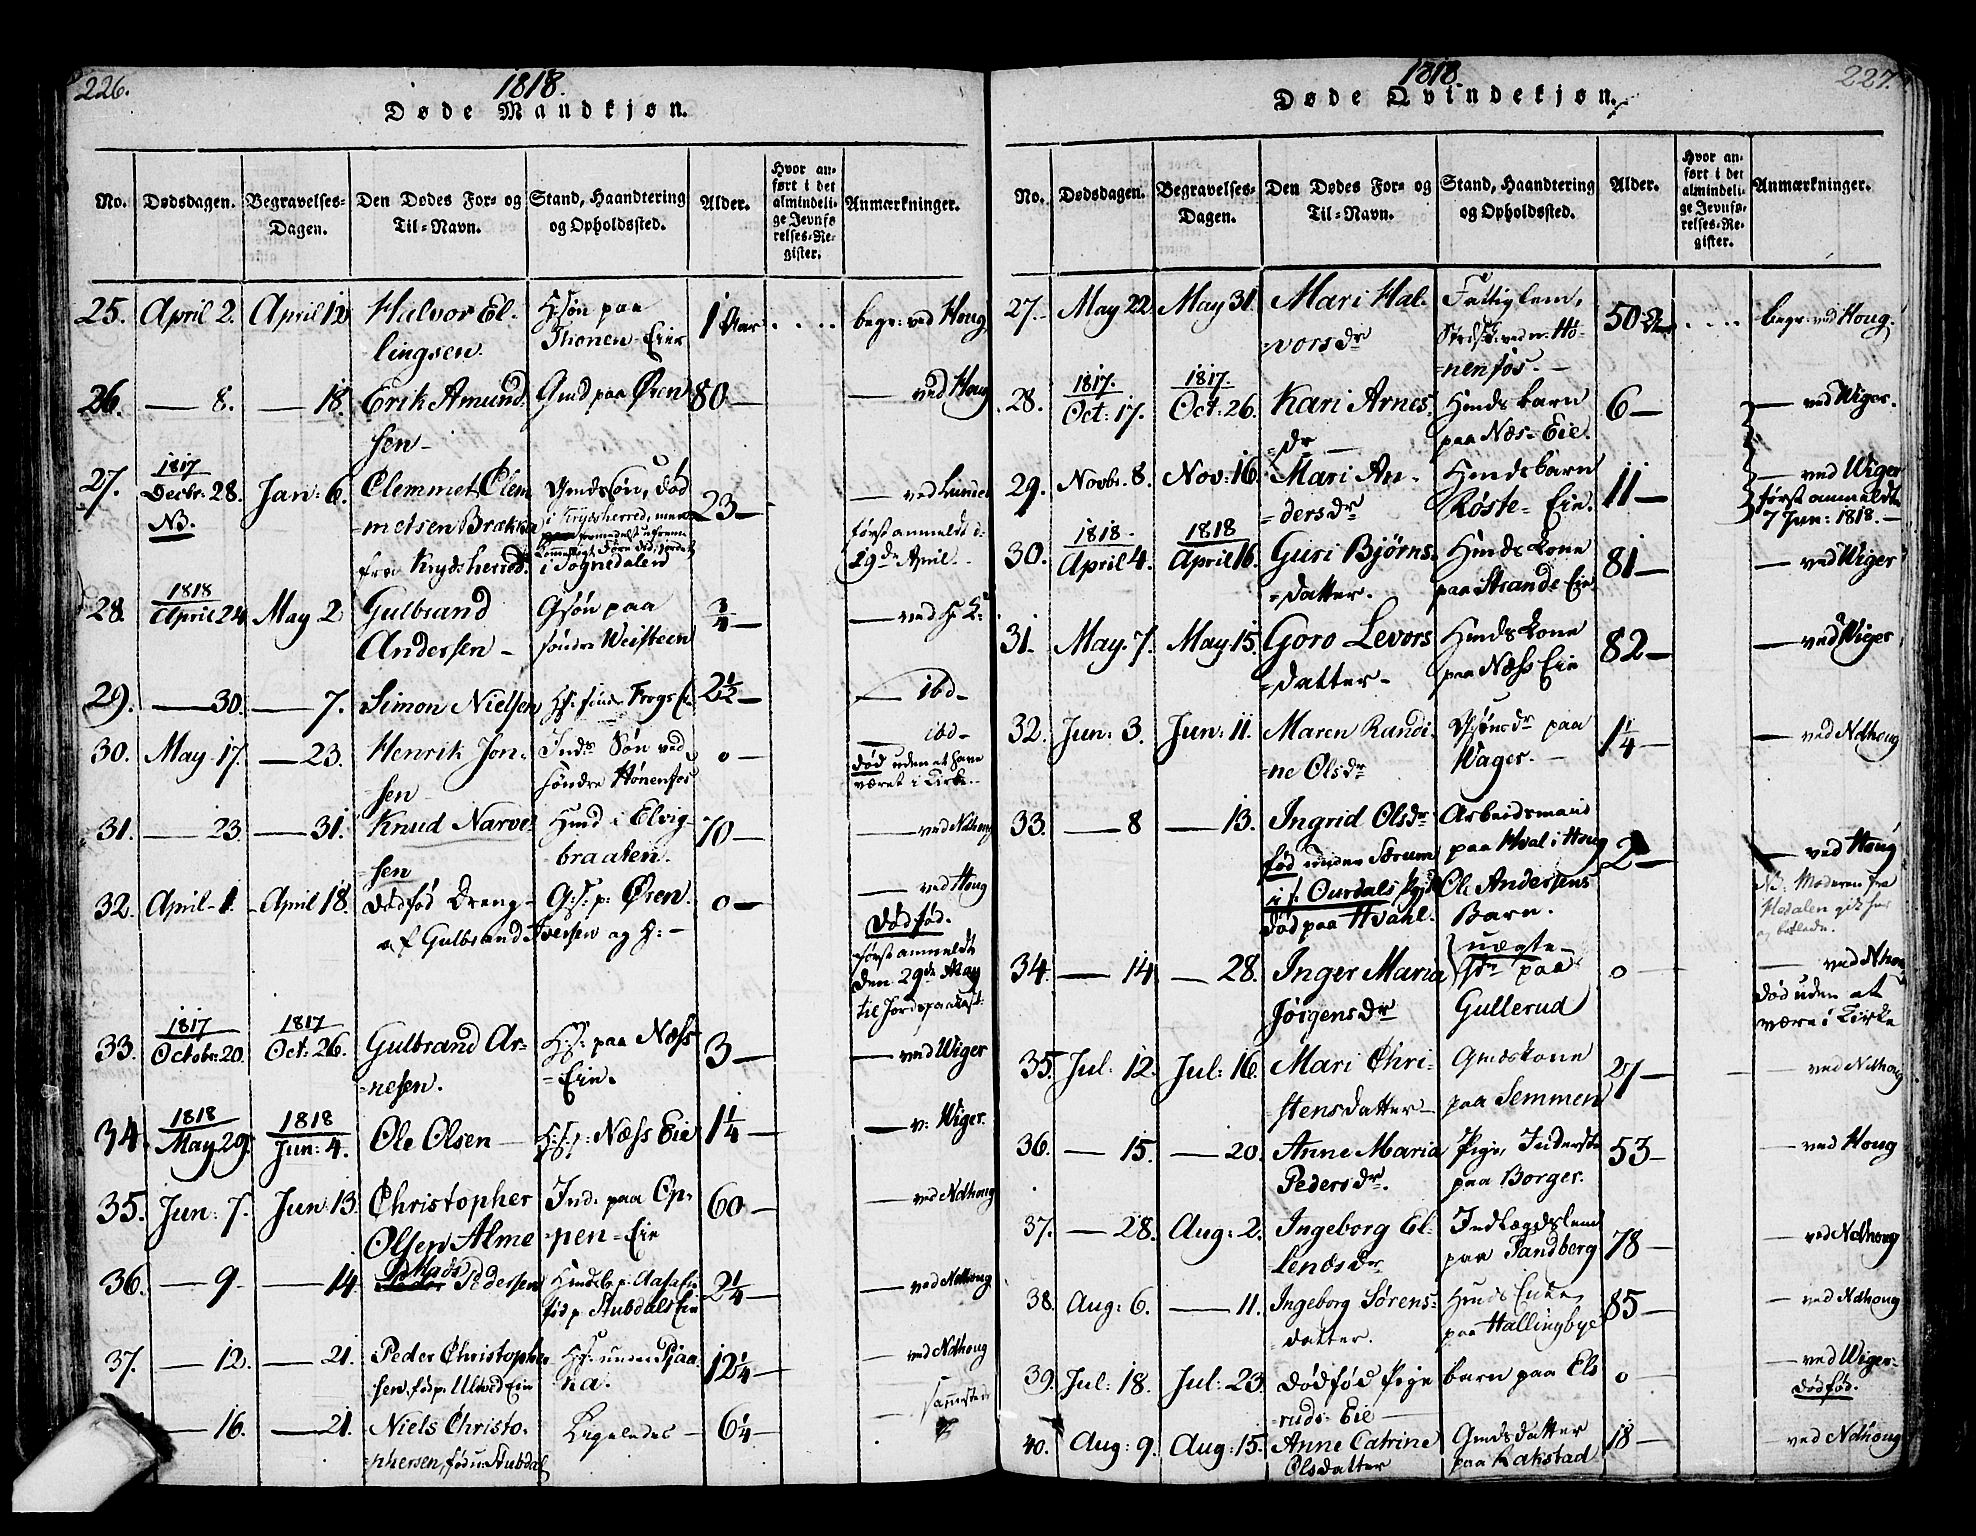 226.
1818.
Døde Mandkjøn.
No. Dødsdagen. Begravelses-Dagen. Den Dødes For- og Til-Navn. Stand, Haandtering og Opholdssted. Alder. Hvor anført i det almindelige Jevnførelses-Register. Anmærkninger.
25. April 2. April 12 Halvor El- H:søn paa 1 Aar begr: ved Houg.
lingsen. Eie
26. — 8. — 18. Erik Amund- Gmd paa Øren 80 — — ved Houg
sen —
27. 1817 Decbr: 28. Jan: 6. Clemmet Clem- død 23 — — ved Lunder
NB. metsen Brække i Krydsherred, først anmeldt d:
fra Krydsherred. i Sognedalen 29de April.
28. 1818 April 24 May 2 Gulbrand Gsøn paa 3/4 — — ved H: K:
Andersen — søndre Weisteen
29. — 30. — 7. Simon Nielsen Frogs Ei 2 1/2 — — ibd —
30. May 17. — 23. Henrik Jon- Inds Søn ved 0 — — ibd —
sen søndre Hønenfos død uden at have
været i Kirke.
31. — 23. — 31. Knud Narve- Hmd i Elvig- 70 — — ved Ndhoug
sen braaten.
32. April 1. April 18. dødfød Dreng- G:s: p: Øren. 0 — — ved Houg
af Gulbrand Iversen og H: — dødfød.
først anmeldt
den 29de May
til Jordspaakast:
33. 1817 Octobr: 20. 1817 Oct: 26. Gulbrand Ar- H:s: paa Næss 3 — — ved Wiger
nesen. Eie.
34. 1818 May 29. 1818 Jun: 4. Ole Olsen — H:s: p: Næss Eie 1 1/4 — — v: Wiger.
35. Jun: 7. Jun: 13. Christopher Ind: paa Op- 60 — — ved Ndhoug
Olsen Alme pen-Eie
36. — 9. — 14. Mads Pedersen 2 1/4 — — ved Ndhoug
fød p. Stubdals Eie
37. — 12. — 21. Peder Christopher- Hs: under Pjaa- 12 1/4 — — ved Ndhoug
sen, fød p: Ulved Eie ka.
— 16. — 21. Niels Christo- Ligeledes — 6 1/4 — — sammested
phersen, fød u: Stubdal
227.
1818.
Døde Qvindekjøn.
No. Dødsdagen. Begravelses-Dagen. Den Dødes For- og Til-Navn. Stand, Haandtering og Opholdssted. Alder. Hvor anført i det almindelige Jevnførelses-Register. Anmærkninger.
27. May 22. May 31. Mari Hal- Fattiglem, 50 Aar begr: ved Houg.
vorsdr ved nr: Hø-
nenfos. —
28. 1817. Oct: 17. 1817. Oct: 26. Kari Arnes- Hmds barn 6 — — ved Wiger.
dr — paa Næs-Eie.
29. Novbr. 8. Nov: 16. Mari An- Hmdsbarn 11 — — ved Wiger
dersdr Røste-Eie. først anmeldte
7 Jun: 1818. —
30. 1818. April 4. 1818 April 16. Guri Bjørns- Hmds kone 81 — — ved Wiger
datter. paa Strande Eie
31. May. 7. May 15. Goro Levors- Hmds kone 82 — — ved Wiger
datter — paa Næss Eie
32. Jun: 3. Jun: 11. Maren Randi- Gsønsdr paa 1 1/4 — — ved Ndhoug
ne Olsdr Wager. —
33. — 8 — 13. Ingrid Olsdr Arbeidsmand 2 — — ved Houg
fød under Sørum paa Hval i Houg NB: Moderen fra
i s: Ourdals Ole Andersens Hedalen gik her
død paa Hvahl. Barn. og betlede.
34. — 14. — 28. Inger Maria uægte dr paa 0 — ved Ndhoug
Jørgensdr Gullerud død uden at
være i Kirke
35. Jul: 12. Jul: 16. Mari Chri- Gmdskone 27 — — ved Ndhoug
stensdatter — paa Semmen
36. — 15. — 20. Anne Maria Pige, Inderste 53 — — ved Houg
Pedersdr. paa Borger.
37. — 28. Aug: 2. Ingeborg El- Indlægdslem 78 — — ved Ndhoug
lendsdr paa Sandberg
38. Aug: 6. — 11. Ingeborg Sørens- Hmds Enke, 85 — — ved Ndhoug
datter. paa Hallingbye
39. Jul: 18. Jul: 23. dødfød Pige barn paa Els 0 — — ved Wiger-
ruds-Eie dødfød.
40. Aug: 9. Aug: 15. Anne Catrine Gmdsdatter 18 — ved Ndhoug
Olsdatter paa Rakstad